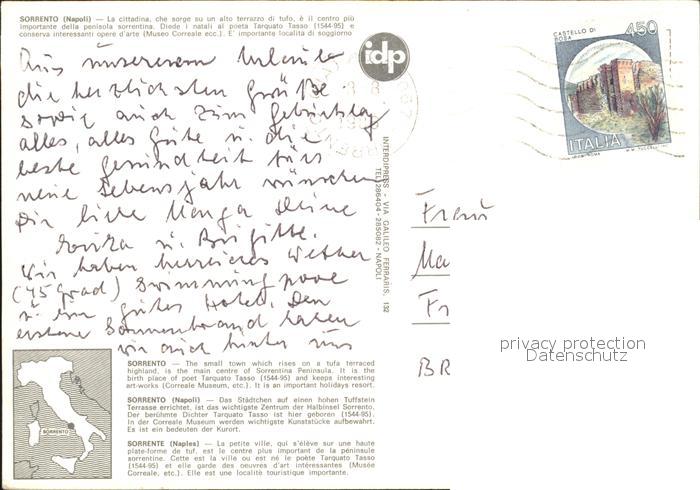 SORRENTO (Napoli) — La cittadina, che sorge su un alto terrazzo di tufo, è il centro più
importante della penisola sorrentina. Diede i natali al poeta Tarquato Tasso (1544-95) e
conserva interessanti opere d'arte (Museo Correale ecc.). E' importante località di soggiorno
idp
CASTELLO DI
ROSA
450
ITALIA
Aus unserem Urlaub
die herzlichsten Grüße
sowie auch zum Geburtstag
alles, alles Gute u. die
beste Gesundheit fürs
neue Lebensjahr wünschen
Dir liebe Manga Deine
u. Brigitte.
Wir haben herrliches Wetter
(45 grad) Swimming pool
u. ein gutes Hotel. Den
ersten Sonnenbrand haben
wir auch hinter uns
INTERDIPRESS - VIA GALILEO FERRARIS, 132
TEL. 286404 - 285082 - NAPOLI
Frau
Ma
Fr
BR
privacy protection
Datenschutz
SORRENTO
SORRENTO — The small town which rises on a tufa terraced
highland, is the main centre of Sorrentina Peninsula. It is the
birth place of poet Tarquato Tasso (1544-95) and keeps interesting
art-works (Correale Museum, etc.). It is an important holidays resort.
SORRENTO (Napoli) — Das Städtchen auf einen hohen Tuffstein
Terrasse errichtet, ist das wichtigste Zentrum der Halbinsel Sorrento.
Der berühmte Dichter Tarquato Tasso ist hier geboren (1544-95).
In der Correale Museum werden wichtigste Kunstücke aufbewahrt.
Es ist ein bedeuten der Kurort.
SORRENTE (Naples) — La petite ville, qui s'élève sur une haute
plate-forme de tuf, est le centre plus important de la péninsule
sorrentine. Cette est la ville ou est né le poète Tarquato Tasso
(1544-95) et elle garde des oeuvres d'art intéressantes (Musée
Correale, etc.). Elle est une localité touristique importante.